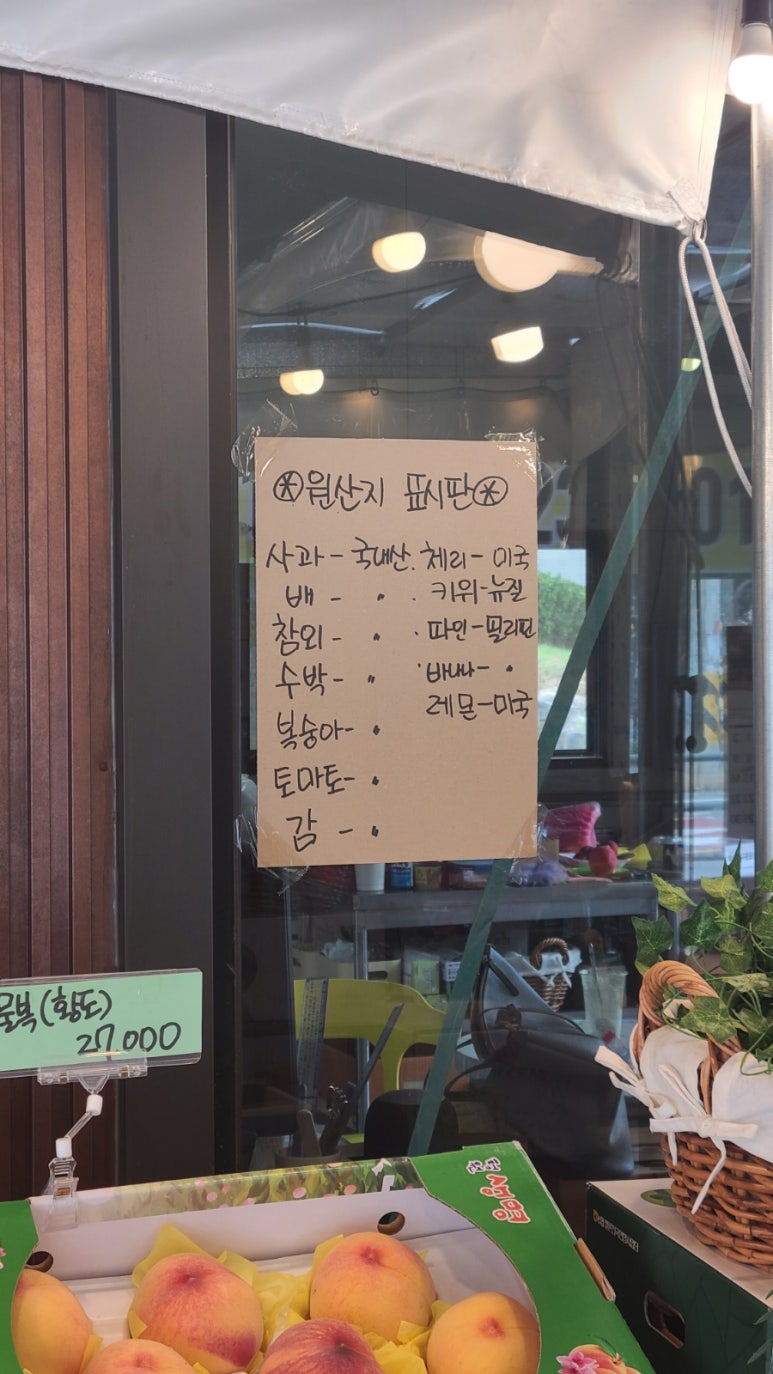 원산지 표시판
사과 - 국내산. 체리 - 미국
배 - 〃 . 키위-뉴질
참외 - 〃 . 파인-필리핀
수박 - 〃 . 바나나 - 〃
복숭아 - 〃 레몬-미국
토마토 - 〃
감 - 〃
물복(황도)
27,000
햇사레